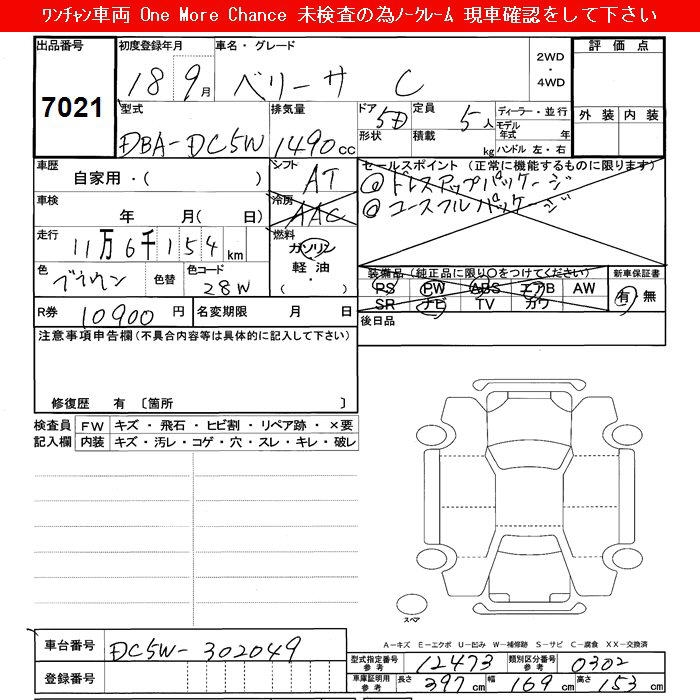 ﾜﾝﾁｬﾝ車両 One More Chance 未検査の為ﾉｰｸﾚｰﾑ 現車確認をして下さい
出品番号
7021
初度登録年月
18 9月
車名・グレード
ベリーサ C
2WD
・
4WD
評価点
外装 内装
型式
DBA-DC5W
排気量
1490cc
ドア 5D
形状
定員 5人
積載 kg
ディーラー・並行
モデル年式 年
ハンドル 左・右
車歴
自家用・( )
車検
年 月( 日)
走行
11万6千154km
色
ブラウン
色替
色コード
28W
シフト
AT
冷房
AAC
燃料
ガソリン
軽油・
( )
セールスポイント (正常に機能するものに限ります)
◎ドレスアップパッケージ
◎ユースフルパッケージ
装備品(純正品に限り○をつけてください)
PS PW ABS エアB AW
SR ナビ TV カワ
新車保証書
有・無
後日品
R券 10900円
名変期限 月 日
注意事項申告欄(不具合内容等は具体的に記入して下さい)
修復歴 有 〔箇所 〕
検査員記入欄
FW キズ・飛石・ヒビ割・リペア跡・×要
内装 キズ・汚レ・コゲ・穴・スレ・キレ・破レ
スペア
A－キズ E－エクボ U－凹み W－補修跡 S－サビ C－腐食 XX－交換済
車台番号 DC5W-302049
登録番号
型式指定番号参考 12473
類別区分番号参考 0302
車庫証明用参考 長さ 397cm 幅 169cm 高さ 153cm